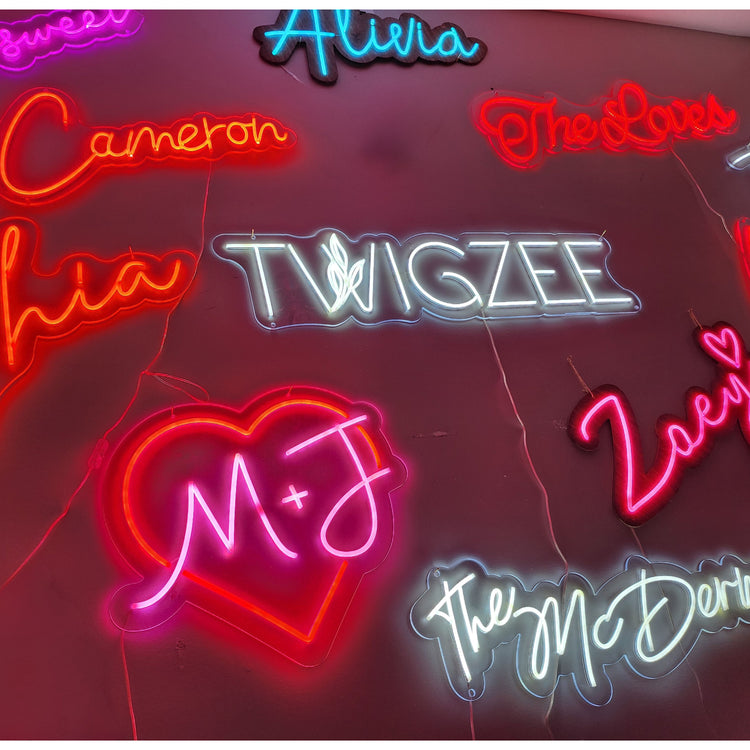 sweet
Alivia
Cameron
The Loves
hia
TWIGZEE
Zoey
M + J
The McDerm